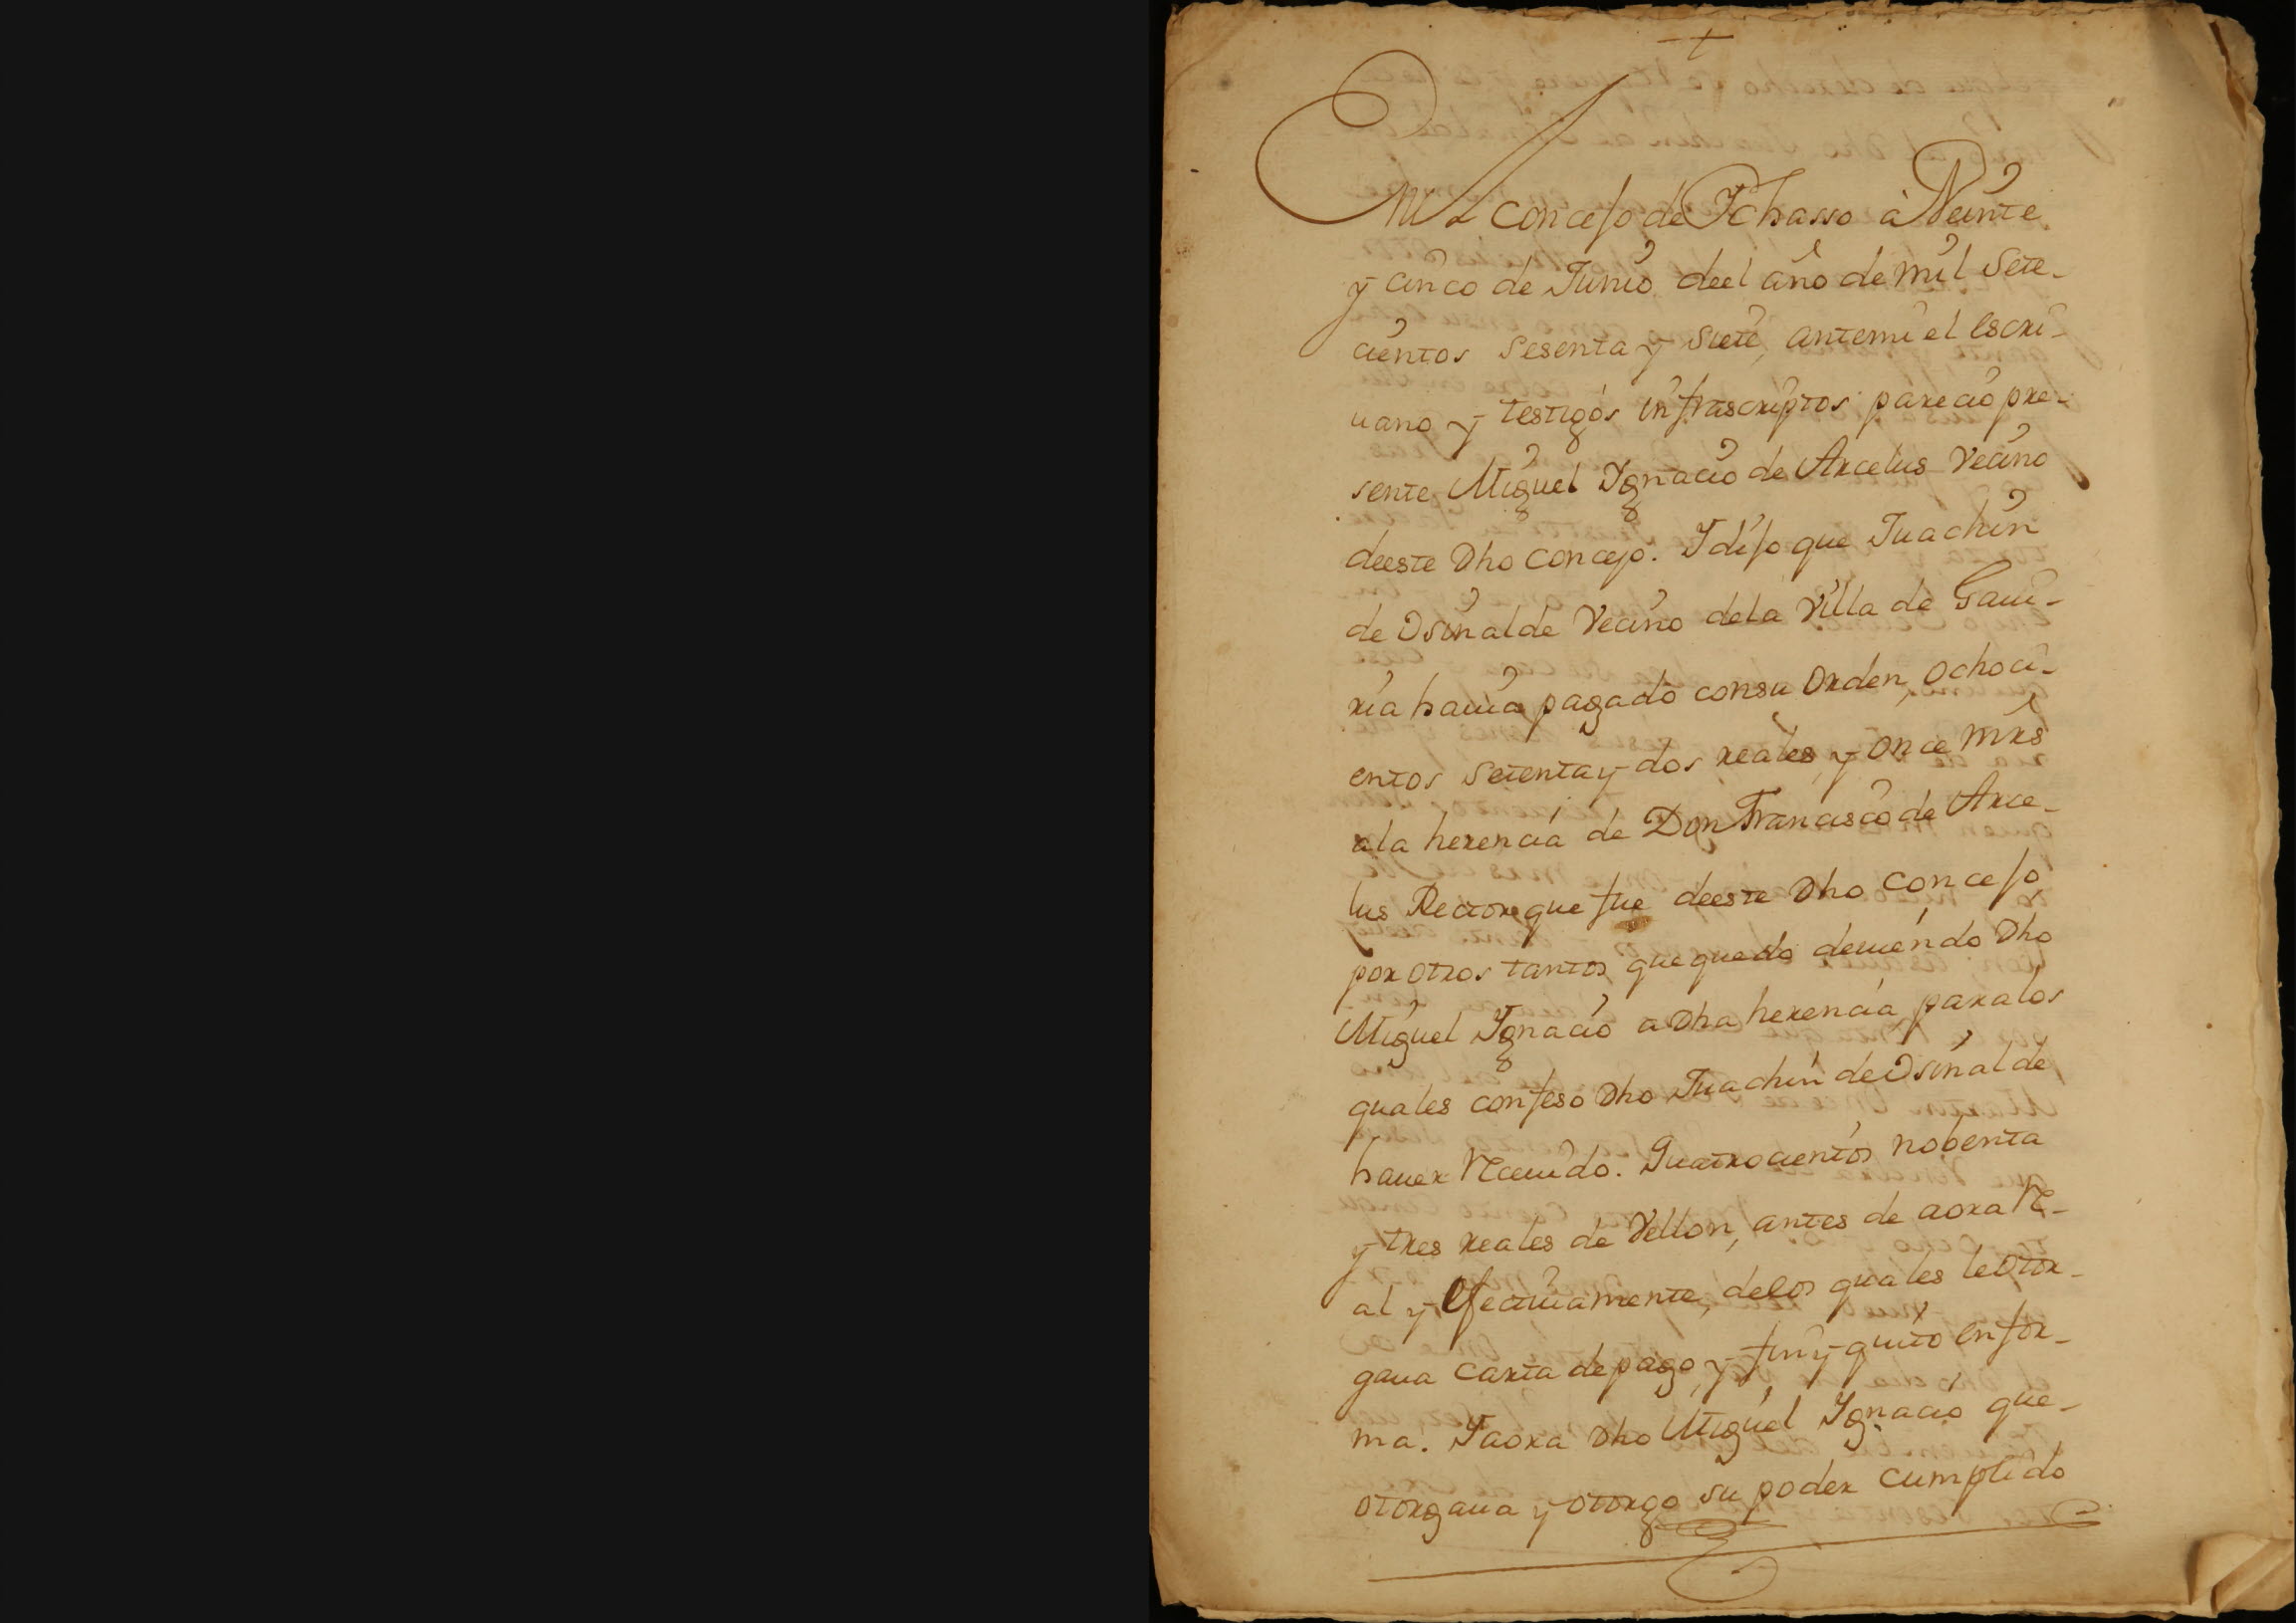 +
En el Concejo de Ichasso à Veinte
y cinco de Junio deel año de mil sete-
cientos sesenta y siete, antemi el escri-
uano y testigos infrascriptos parecio pre-
sente Miguel Ygnacio de Arcelus Vecino
deeste Dho Concejo. Y dijo que Juachin
de Osinalde Vecino dela Villa de Gaui-
ria hauia pagado consu orden, ochoci-
entos setenta y dos reales y once mrs
ala herencia de Don Francisco de Arce-
lus Rector que fue deeste Dho Concejo
por otros tantos que quedo deuiendo Dho
Miguel Ygnacio a Dha herencia paralos
quales confeso Dho Juachin de Osinalde
hauer Receuido. Quatrocientos nobenta
y tres reales de Vellon, antes de aora Re-
al y efectiuamente, delos quales le otor-
gaua carta de pago, y fin y quito en for-
ma. Y aora Dho Miguel Ygnacio que-
otorgaua y otorgo su poder cumplido